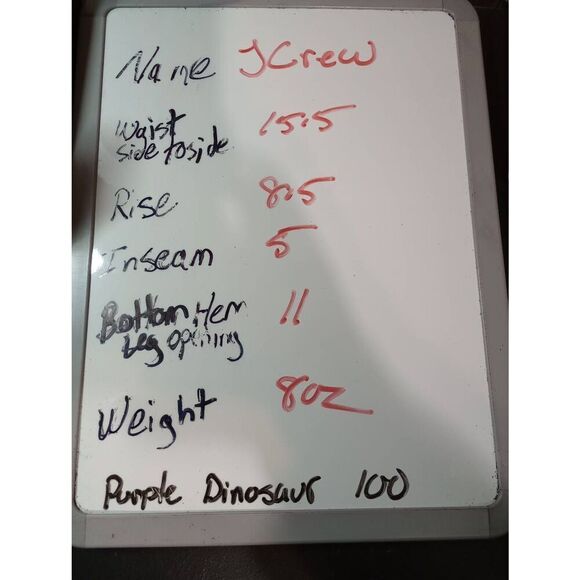 Name JCrew
Waist side to side 15.5
Rise 8.5
Inseam 5
Bottom Hem Leg opening 11
Weight 8oz
Purple Dinosaur 100